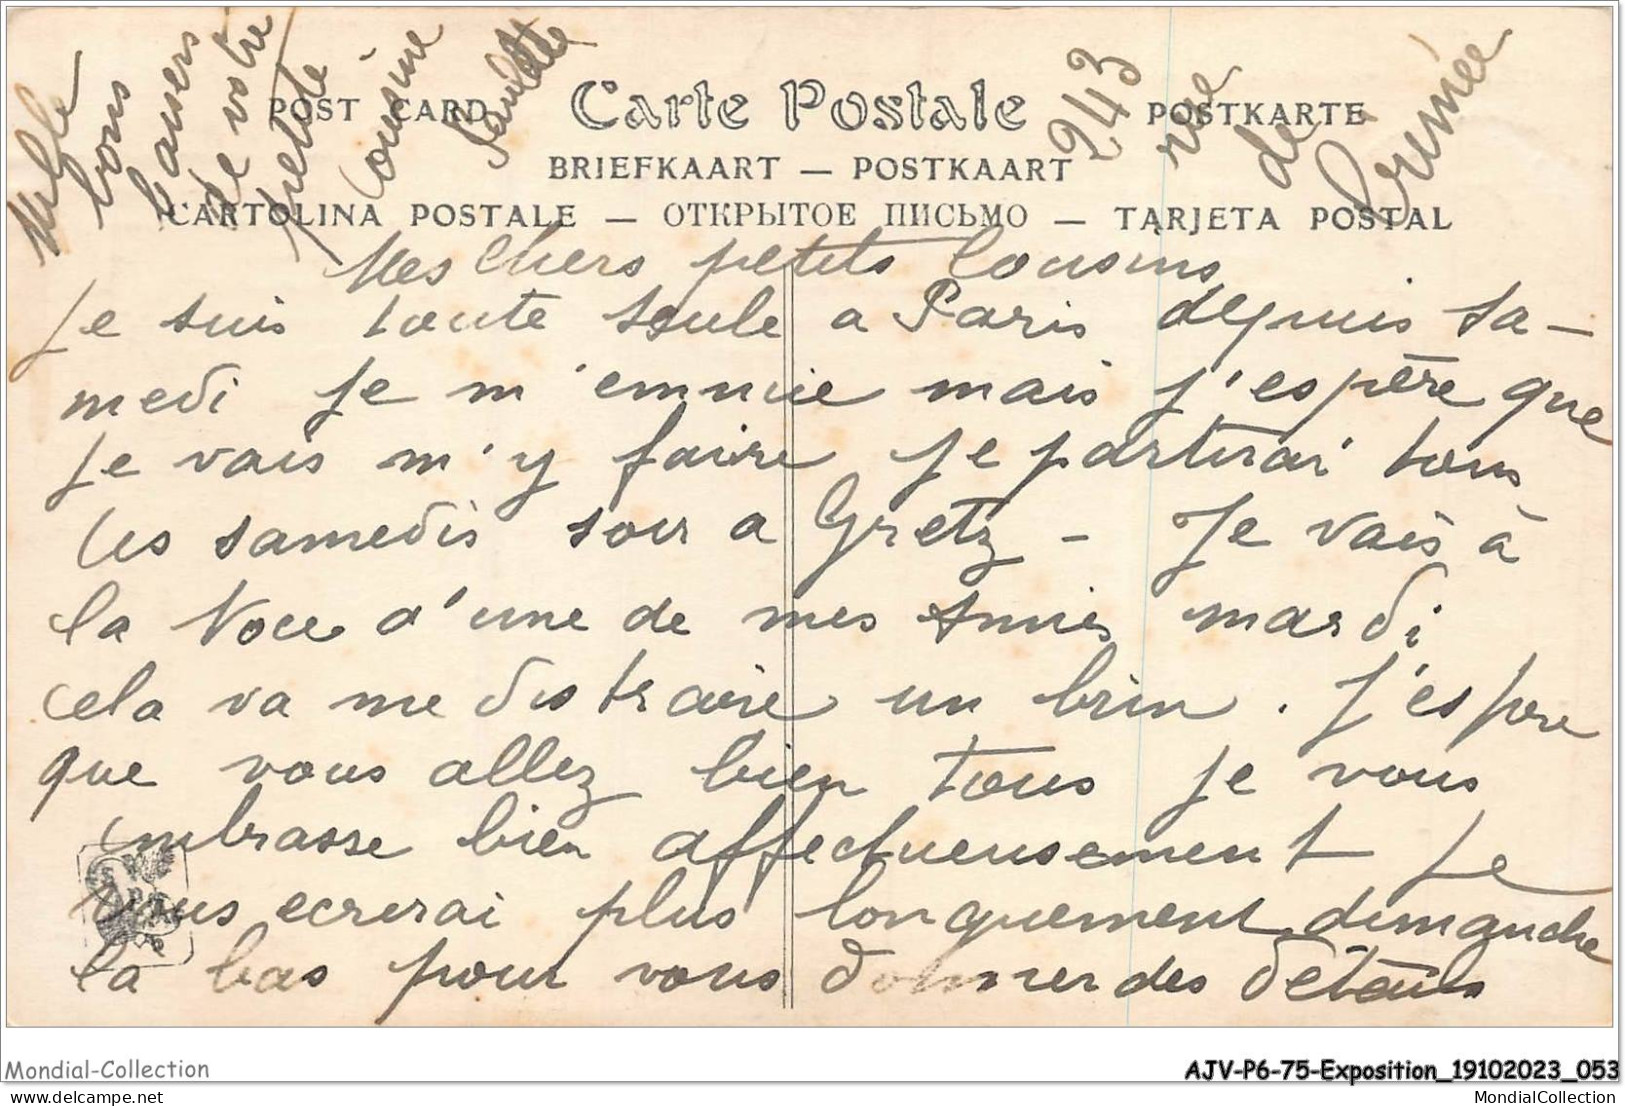 Mille
bons
baisers
de votre
petite
Cousine
Paulette
243
rue
de
Crimée
POST CARD Carte Postale POSTKARTE
BRIEFKAART — POSTKAART
CARTOLINA POSTALE — ОТКРЫТОЕ ПИСЬМО — TARJETA POSTAL
Mes Chers petits Cousins
Je suis toute seule a Paris depuis sa-
medi je m'ennuie mais j'espère que
je vais m'y faire je partirai tous
les samedis soir a Gretz - Je vais à
la Noce d'une de mes Amies mardi
cela va me distraire un brin. J'espere
que vous allez bien tous je vous
embrasse bien affectueusement Je
vous ecrirai plus longuement dimanche
la bas pour vous donner des détails
Mondial-Collection
AJV-P6-75-Exposition_19102023_053
MondialCollection